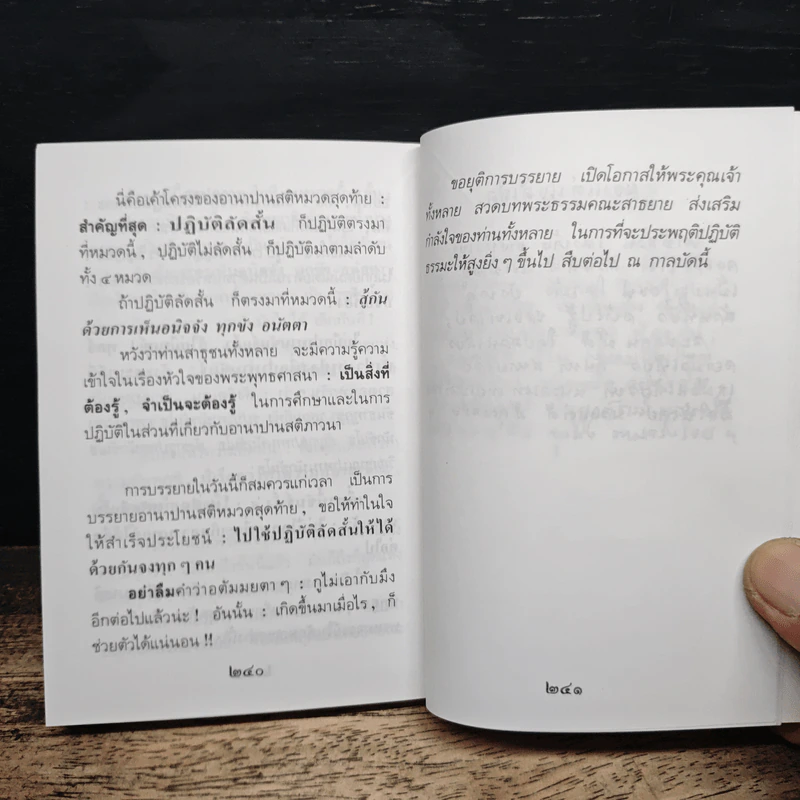 นี่คือเค้าโครงของอานาปานสติหมวดสุดท้าย :
สำคัญที่สุด : ปฏิบัติลัดสั้น ก็ปฏิบัติตรงมา
ที่หมวดนี้, ปฏิบัติไม่ลัดสั้น ก็ปฏิบัติมาตามลำดับ
ทั้ง ๔ หมวด
ถ้าปฏิบัติลัดสั้น ก็ตรงมาที่หมวดนี้ : สู้กัน
ด้วยการเห็นอนิจจัง ทุกขัง อนัตตา
หวังว่าท่านสาธุชนทั้งหลาย จะมีความรู้ความ
เข้าใจในเรื่องหัวใจของพระพุทธศาสนา : เป็นสิ่งที่
ต้องรู้, จำเป็นจะต้องรู้ ในการศึกษาและในการ
ปฏิบัติในส่วนที่เกี่ยวกับอานาปานสติภาวนา
การบรรยายในวันนี้ก็สมควรแก่เวลา เป็นการ
บรรยายอานาปานสติหมวดสุดท้าย, ขอให้ทำในใจ
ให้สำเร็จประโยชน์ : ไปใช้ปฏิบัติลัดสั้นให้ได้
ด้วยกันจงทุก ๆ คน
อย่าลืมคำว่าอตัมมยตา ๆ : กูไม่เอากับมึง
อีกต่อไปแล้วน่ะ ! อันนั้น : เกิดขึ้นมาเมื่อไร, ก็
ช่วยตัวได้แน่นอน !!
๒๔๐
ขอยุติการบรรยาย เปิดโอกาสให้พระคุณเจ้า
ทั้งหลาย สวดบทพระธรรมคณะสาธยาย ส่งเสริม
กำลังใจของท่านทั้งหลาย ในการที่จะประพฤติปฏิบัติ
ธรรมะให้สูงยิ่ง ๆ ขึ้นไป สืบต่อไป ณ กาลบัดนี้
๒๔๑